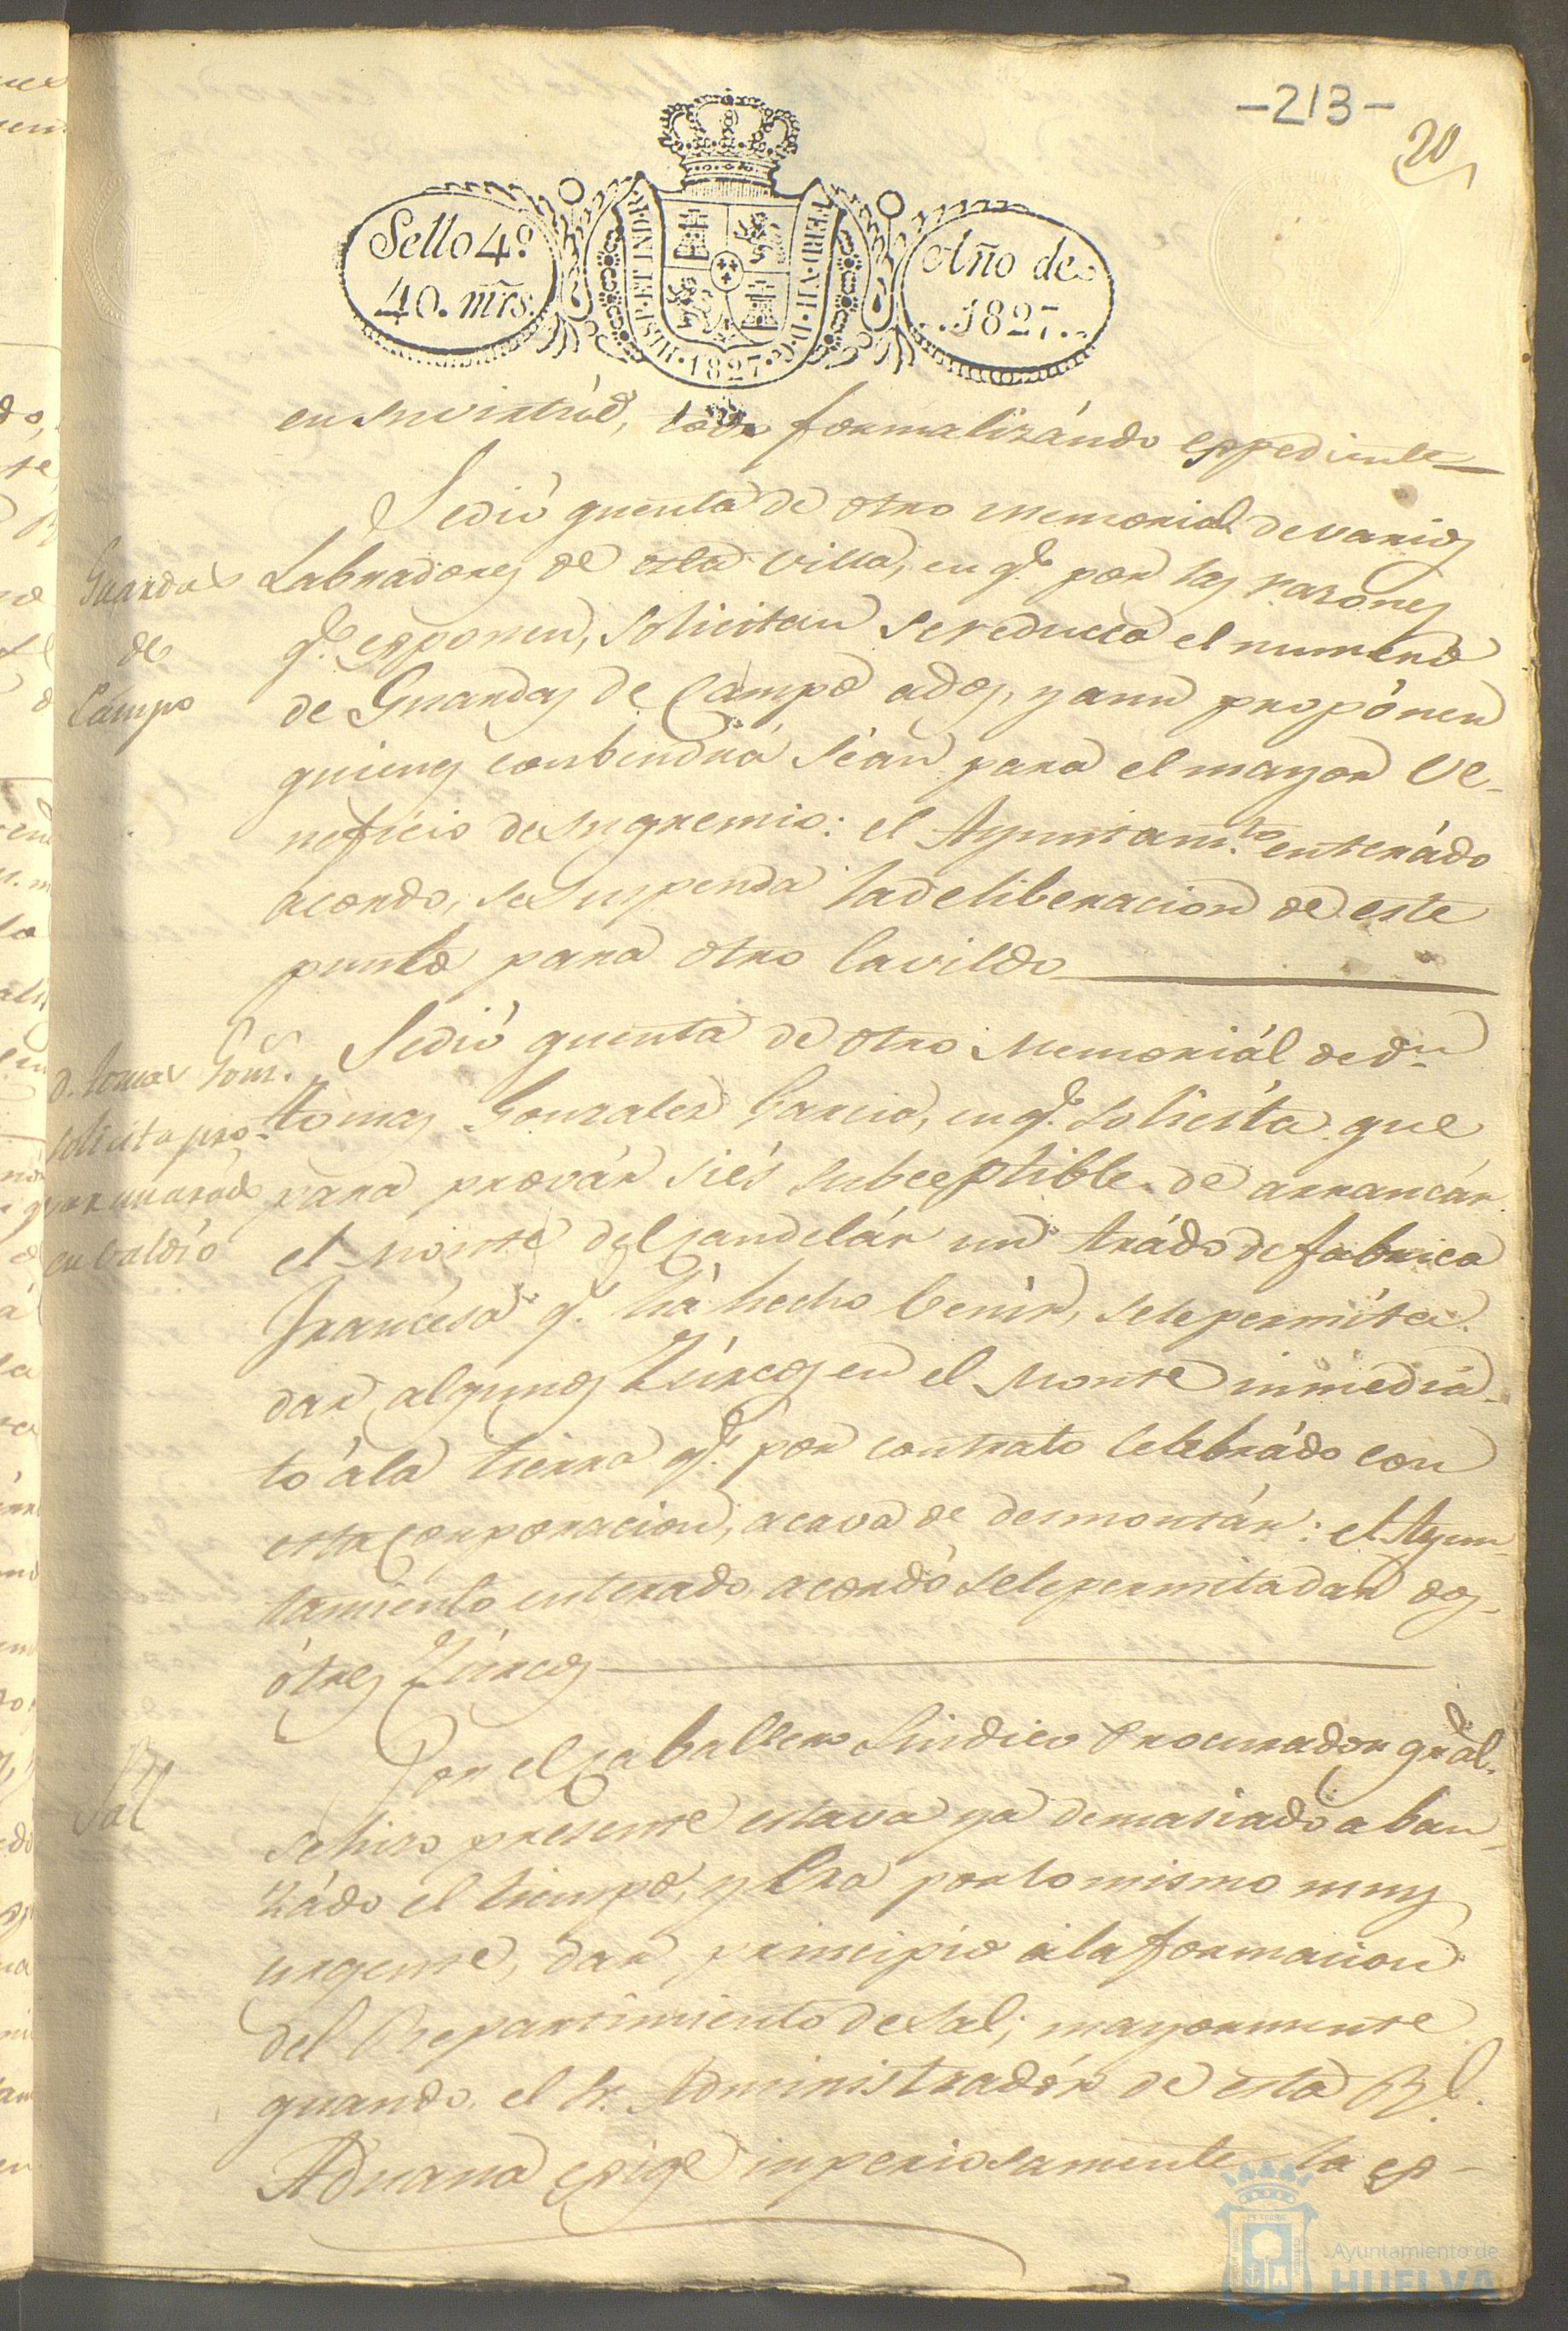 -213-
20
Sello 4º
40. mrs.
HISP. ET IND. R. FERD. VII. D. G. 1827.
Año de
1827.
en su virtud, formalizándo expediente
Se dió quenta de otro memorial de varios
Guardas
de
Campo
Labradores de esta Villa, en qe. por las razones
qe. exponen, solicitan se reduzca el numero
de Guardas de Campo ados, y aun propónen
quienes conbendrá séan para el mayor Ve-
neficio de su gremio: el Ayuntamto. enterádo
acordo, se suspenda la deliberacion de este
punto para otro Cavildo
Se dió quenta de otro Memoriál de dn.
D. Tomas Gonz.
solicita pro-
var un arádo
en baldío
Tomas Gonzalez Garcia, en qe. solicíta que
para prová​r si és subceptible de arrancár
el monte del candelár un Arádo de fabrica
Francesa qe. há hecho Venír, se le permíta
dar algunos Zúrcos en el Monte inmediá-
to á la tierra qe. por contrato Celebrádo con
esta Corporacion, acava de desmontár: el Ayun-
tamiento enterado acordó se le permita dar dos
ó tres Zúrcos
Sal
Por el Caballero Sindico Procurador gral.
se hizo presente estava ya demasiado aban-
zádo el tiempo, y Era por lo mismo muy
urgente, dar principio a la formacion
del Repartimiento de Sal; mayormente
quando el Sr. Administradór de esta Rl.
Aduana exige imperiosamente la ex-
Ayuntamiento de
HUELVA